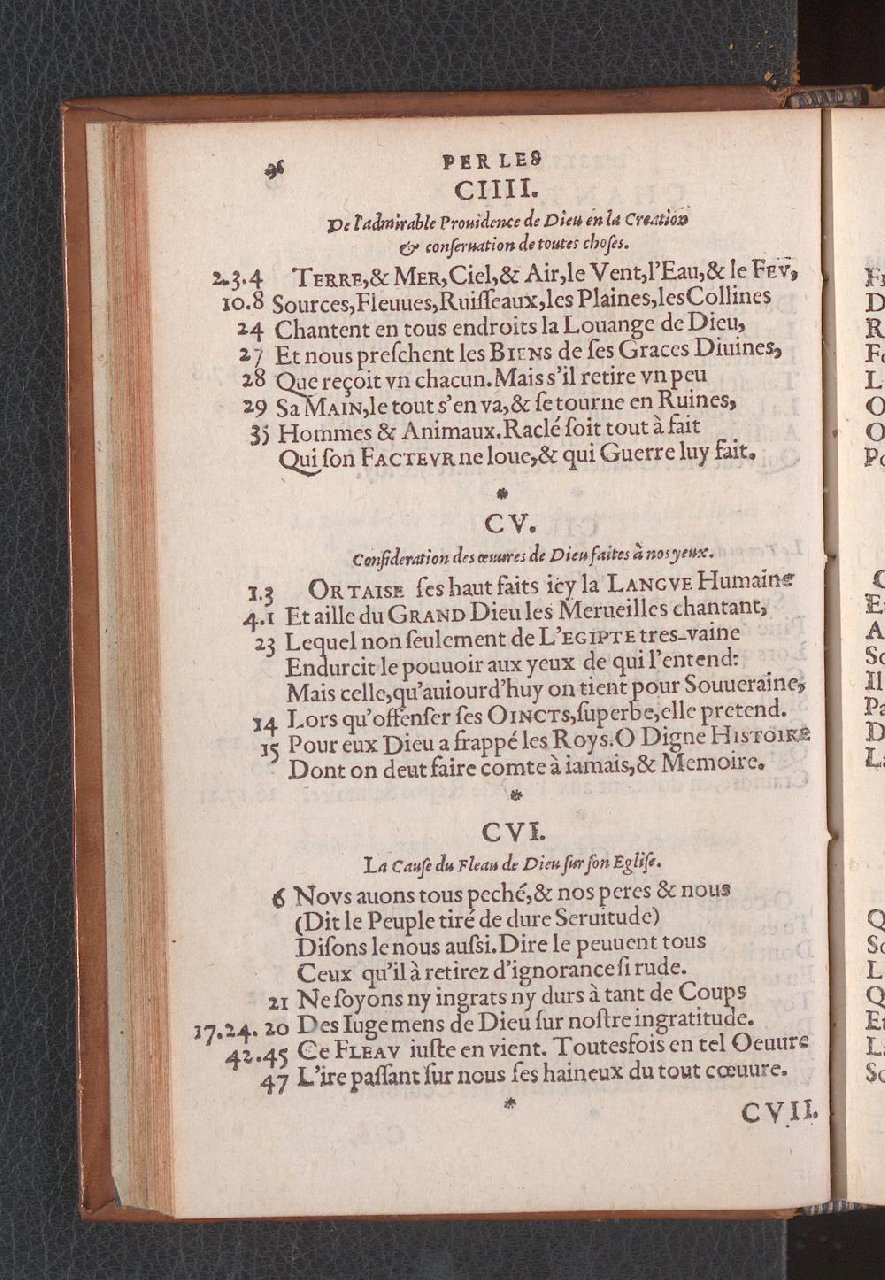 96 PERLES
CIIII.
De l'admirable Prouidence de Dieu en la Creation
& conseruation de toutes choses.
2.3.4 TERRE,& MER,Ciel,& Air,le Vent,l'Eau,& le FEV,
10.8 Sources,Fleuues,Ruiſſeaux,les Plaines,les Collines
24 Chantent en tous endroits la Louange de Dieu,
27 Et nous preſchent les BIENS de ſes Graces Diuines,
28 Que reçoit vn chacun.Mais s'il retire vn peu
29 Sa MAIN,le tout s'en va,& ſe tourne en Ruines,
35 Hommes & Animaux.Raclé ſoit tout à fait
Qui ſon FACTEVR ne loue,& qui Guerre luy fait.
*
CV.
Conſideration des œuures de Dieu faites à nos yeux.
1.3 ORTAISE ſes haut faits icy la LANGVE Humaine
4.1 Et aille du GRAND Dieu les Merueilles chantant,
23 Lequel non ſeulement de L'EGIPTE tres-vaine
Endurcit le pouuoir aux yeux de qui l'entend:
Mais celle,qu'auiourd'huy on tient pour Souueraine,
14 Lors qu'offenſer ſes OINCTS,ſuperbe,elle pretend.
15 Pour eux Dieu a frappé les Roys.O Digne HISTOIRE
Dont on deut faire comte à iamais,& Memoire.
*
CVI.
La Cauſe du Fleau de Dieu ſur ſon Egliſe.
6 NOVS auons tous peché,& nos peres & nous
(Dit le Peuple tiré de dure Seruitude)
Diſons le nous auſſi.Dire le peuuent tous
Ceux qu'il à retirez d'ignorance ſi rude.
21 Ne ſoyons ny ingrats ny durs à tant de Coups
17.24.20 Des Iugemens de Dieu ſur noſtre ingratitude.
42.45 Ce FLEAV iuſte en vient. Toutesfois en tel Oeuure
47 L'ire paſſant ſur nous ſes haineux du tout cœuure.
*
CVII.